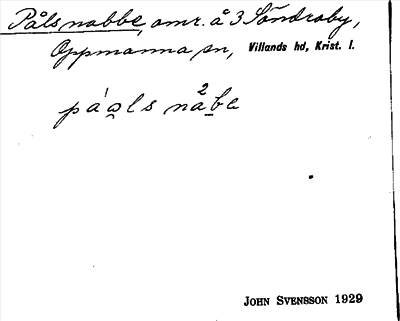 Påls nabbe, omr. å 3 Söndraby,
Oppmanna sn, Villands hd, Krist. l.
páo̯ls nåb̲e
JOHN SVENSSON 1929